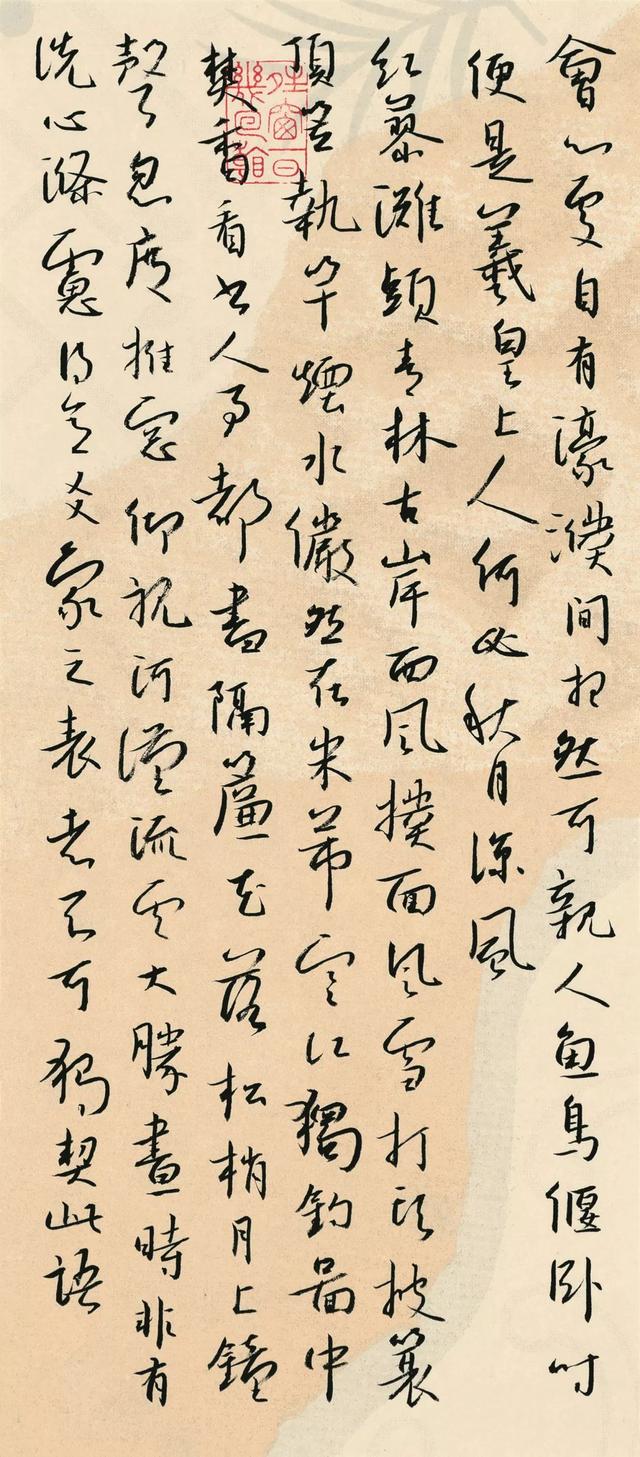 會心處自有濠濮間想然可親人魚鳥偃卧時
便是羲皇上人何必秋月涼風
紅蓼灘頭青林古岸西風撲面風雪打頭披蓑
頂笠執竿煙水儼然在米芾寒江獨釣圖中
焚香看書人事都盡隔簾花落松梢月上鐘
聲忽度推窗仰視河漢流雲大勝晝時非有
洗心滌慮得意爻象之表者不可獨契此語